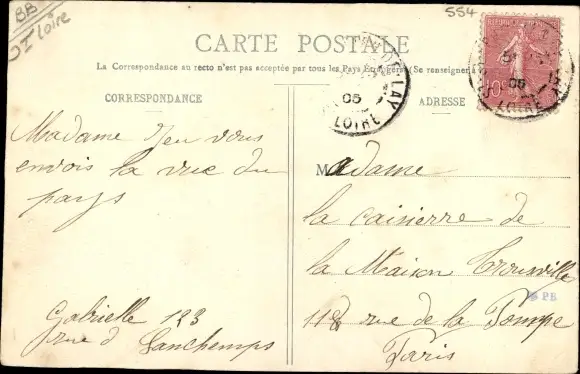 BB
I Loire
554
CARTE POSTALE
La Correspondance au recto n'est pas acceptée par tous les Pays Etrangers (Se renseigner à
CORRESPONDANCE
ADRESSE
LAY
05
LOIRE
05
LOIRE
10c
Madame Jeu vous
envois la vue du
pays
Gabrielle 123
rue d Lanchemps
Madame
la caisierre de
la Maison Trousville
118 rue de la Pompe
Paris
PB